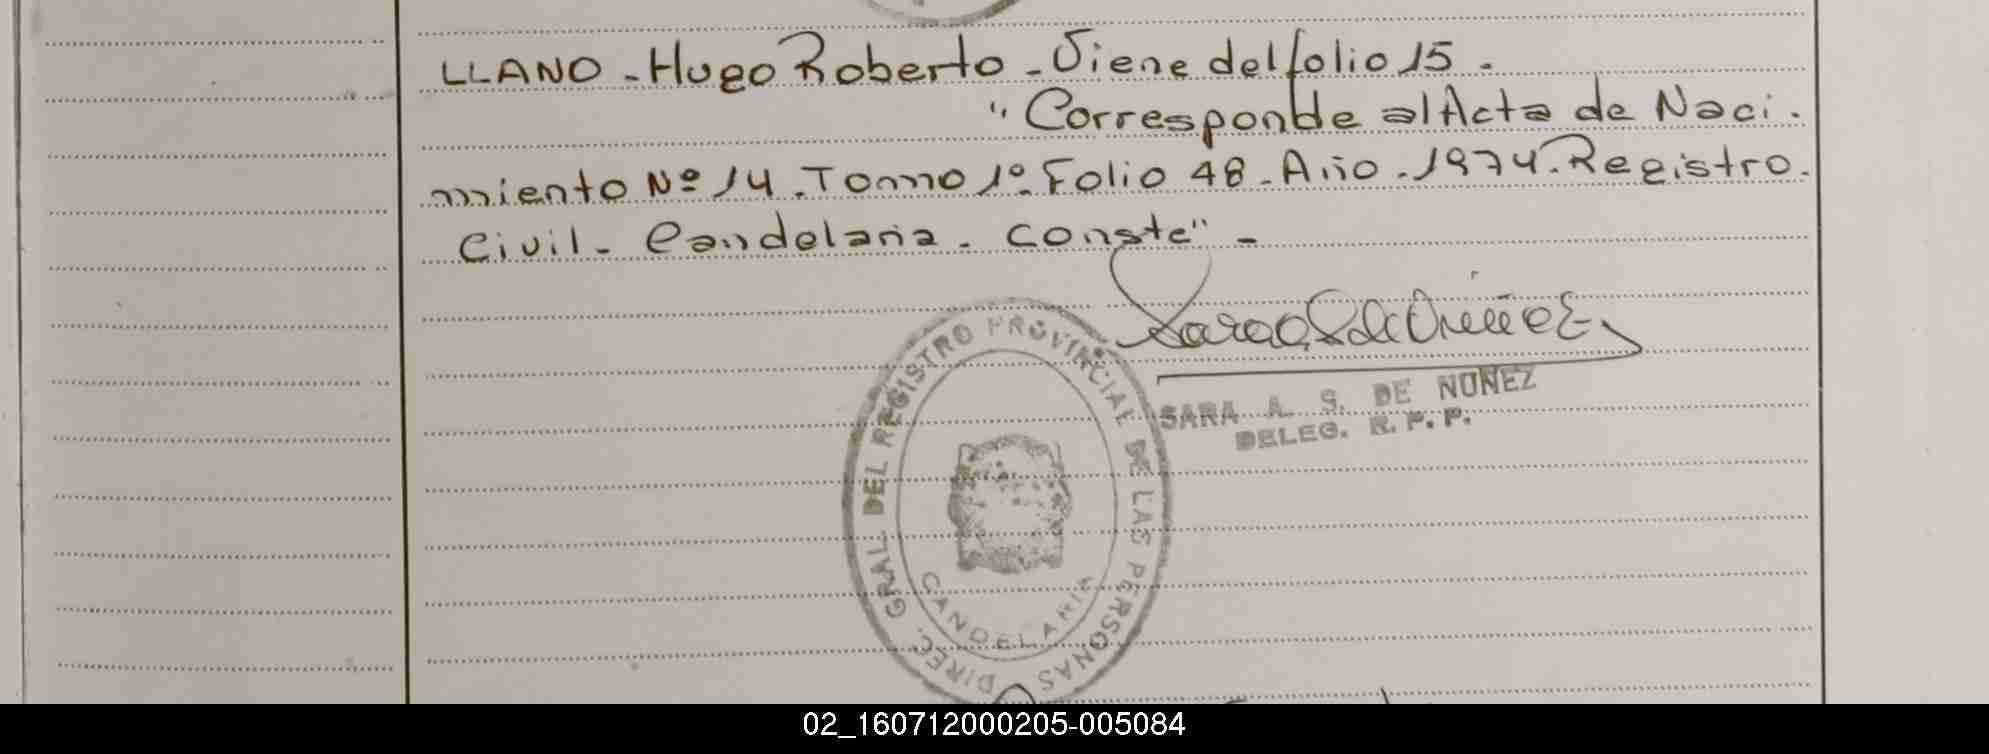 LLANO - Hugo Roberto - Viene del folio 15 -
" Corresponde al Acta de Naci.
miento Nº 14. Tomo 1º. Folio 48 - Año - 1974. Registro.
Civil - Candelaria - Conste" -
SARA A. S. DE NUÑEZ
DELEG. R. P. P.
DIREC. GRAL. DEL REGISTRO PROVINCIAL DE LAS PERSONAS
CANDELARIA
02_160712000205-005084